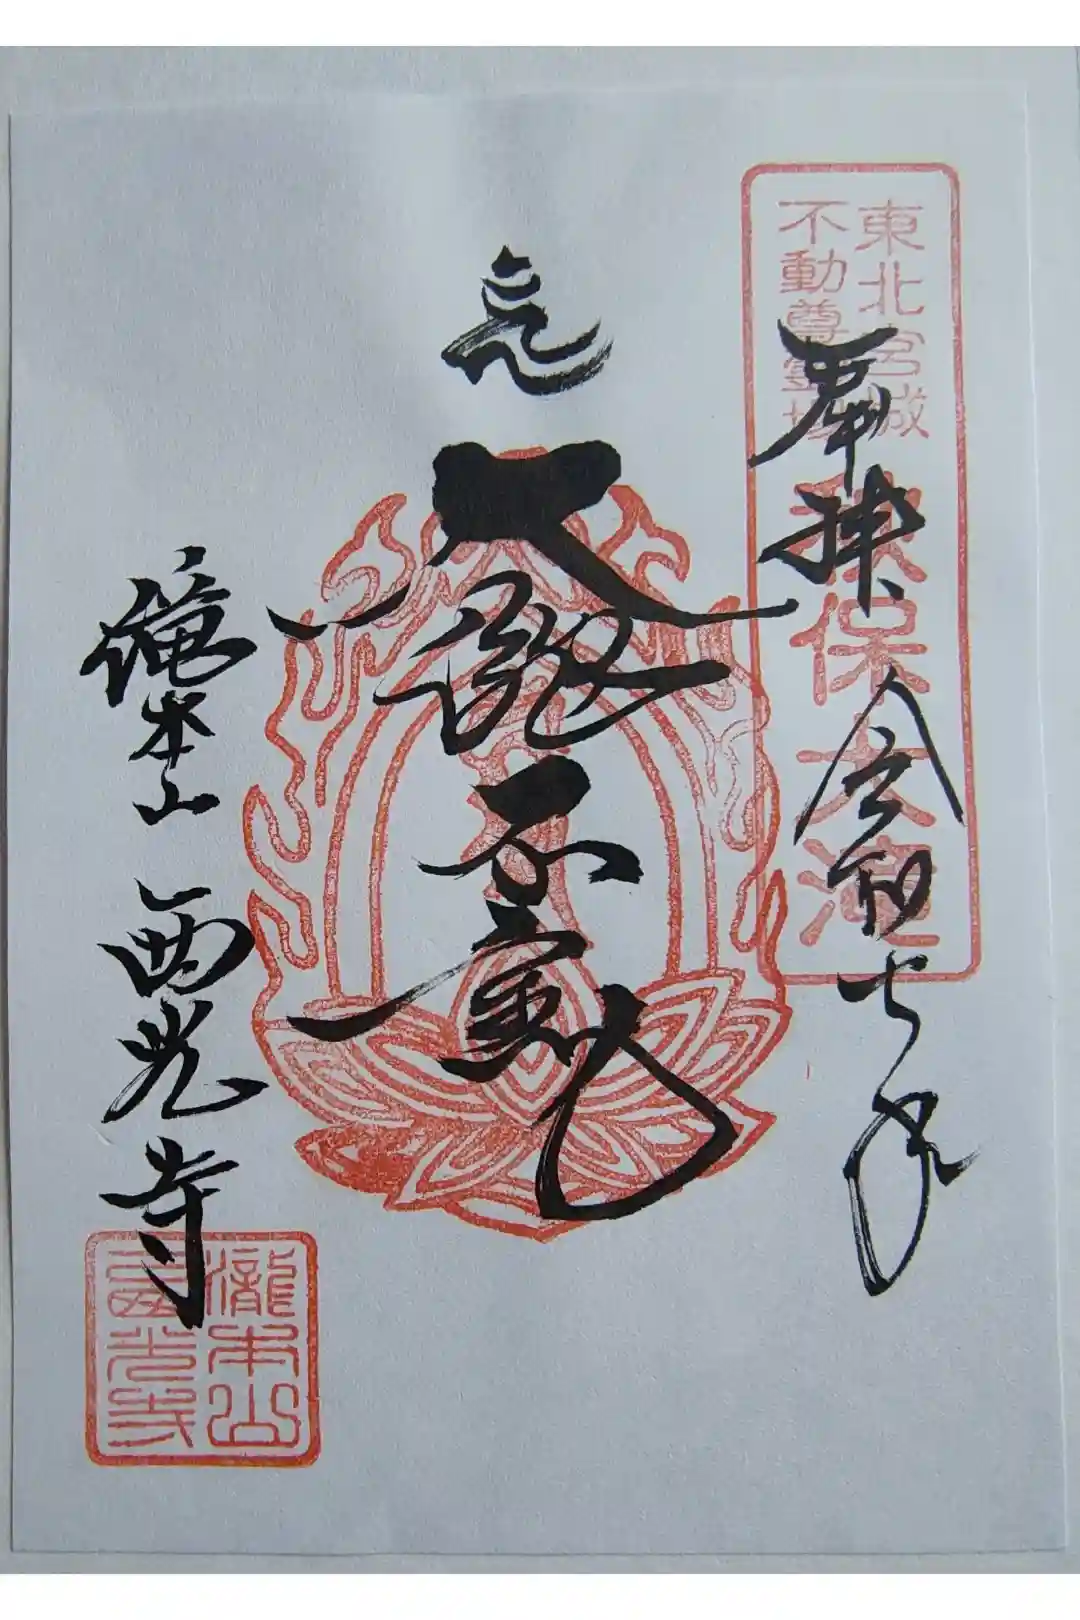 東北宮城
不動尊霊場
秋保大滝
奉拝 令和七年
大滝不動
滝本山 西光寺
瀧本山
西光寺